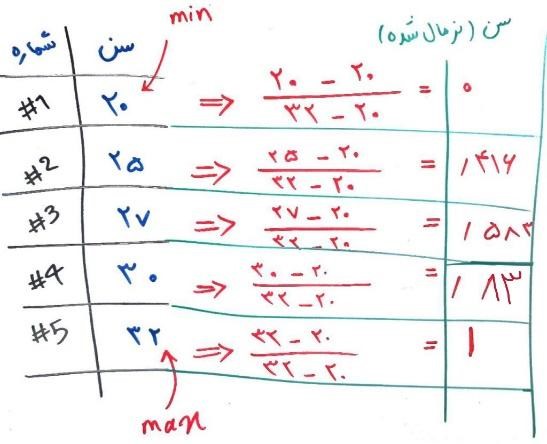 min
شماره سن سن (نرمال شده)
#1 ۲۰ ⇒ (۲۰ - ۲۰) / (۳۲ - ۲۰) = ۰
#2 ۲۵ ⇒ (۲۵ - ۲۰) / (۳۲ - ۲۰) = ,۴۱۶
#3 ۲۷ ⇒ (۲۷ - ۲۰) / (۳۲ - ۲۰) = ,۵۸۳
#4 ۳۰ ⇒ (۳۰ - ۲۰) / (۳۲ - ۲۰) = ,۸۳
#5 ۳۲ ⇒ (۳۲ - ۲۰) / (۳۲ - ۲۰) = ۱
max